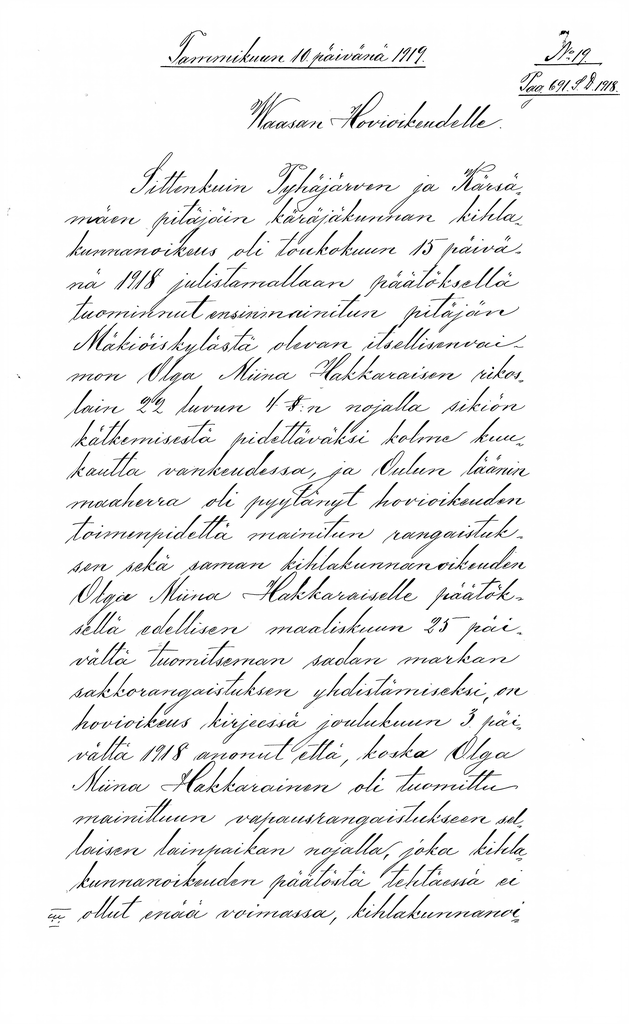 Tammikuun 10. päivänä 1919.
No 19.
Taa 691. S. D. 1918.
Waasan Hovioikeudelle.
Sittenkuin Pyhäjärven ja Kärsä-
mäen pitäjäin käräjäkunnan kihla-
kunnanoikeus oli toukokuun 15 päivä-
nä 1918 julistamallaan päätöksellä
tuominnut ensinmainitun pitäjän
Mäkiöiskylästä olevan itsellisenvai-
mon Olga Miina Hakkaraisen rikos-
lain 22 luvun 4 §:n nojalla sikiön
kätkemisestä pidettäväksi kolme kuu-
kautta vankeudessa, ja Oulun läänin
maaherra oli pyytänyt hovioikeuden
toimenpidettä mainitun rangaistuk-
sen sekä saman kihlakunnanoikeuden
Olga Miina Hakkaraiselle päätök-
sellä edellisen maaliskuun 25 päi-
vältä tuomitseman sadan markan
sakkorangaistuksen yhdistämiseksi, on
hovioikeus kirjeessä joulukuun 3 päi-
vältä 1918 anonut että, koska Olga
Miina Hakkarainen oli tuomittu
mainittuun vapausrangaistukseen sel-
laisen lainpaikan nojalla, joka kihla-
kunnanoikeuden päätöstä tehtäessä ei
ollut enää voimassa, kihlakunnanoi-